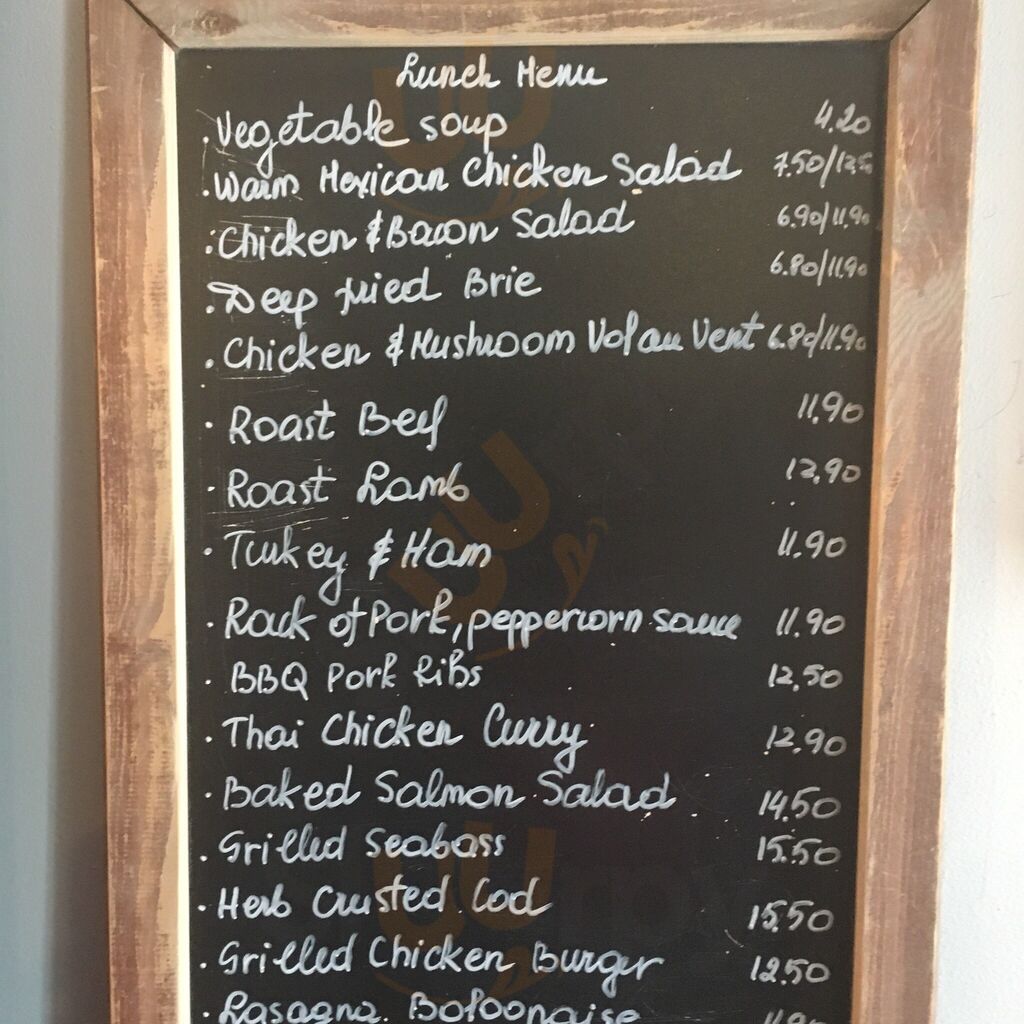 Lunch Menu
. Vegetable soup 4.20
. Warm Mexican Chicken Salad 7.50/12.5
. Chicken & Bacon Salad 6.90/11.90
. Deep fried Brie 6.80/11.90
. Chicken & Mushroom Vol au Vent 6.80/11.90
. Roast Beef 11.90
. Roast Lamb 12.90
. Turkey & Ham 11.90
. Rack of Pork, peppercorn sauce 11.90
. BBQ Pork Ribs 12.50
. Thai Chicken Curry 12.90
. Baked Salmon Salad 14.50
. Grilled Seabass 15.50
. Herb Crusted Cod 15.50
. Grilled Chicken Burger 12.50
. Lasagna Bolognaise 11.90